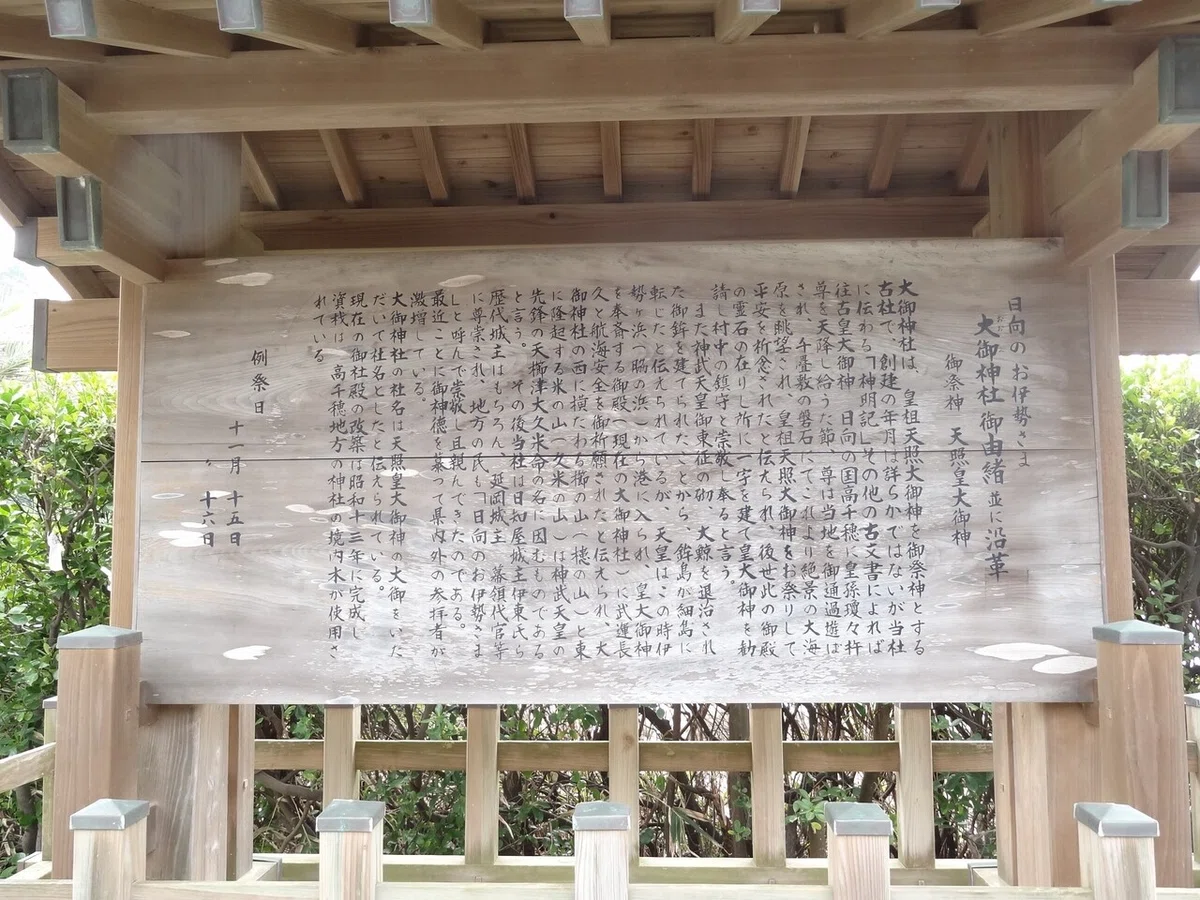 日向のお伊勢さま
大御神社御由緒並に沿革
おお
御祭神 天照皇大御神
大御神社は、皇祖天照大御神を御祭神とする
古社で、創建の年月は詳らかではないが当社
に伝わる「神明記」その他の古文書によれば
往古皇大御神、日向の国高千穂に皇孫瓊々杵
尊を天降し給うた節、尊は当地を御通過遊ば
され、千畳敷の磐石にてこれより絶景の大海
原を眺望され、皇祖天照大御神をお祭りして
平安を祈念されたと伝えられ、後世此の御殿
の霊石の在りし所に一宇を建て皇大御神を勧
請し村中の鎮守と崇敬し奉ると言う。
また神武天皇御東征の砌、大鯨を退治され
た御鉾を建てられたことから、鉾島が細島に
転じたと伝えられているが、天皇はこの時伊
勢ヶ浜（脇の浜）から港に入られ、皇大御神
を奉斎する御殿（現在の大御神社）に武運長
久と航海安全を御祈願されたと伝えられ、大
御神社の西に横たわる櫛の山（櫓の山）と東
に隆起する米の山（久米の山）は神武天皇の
先鋒の天櫛津大久米命の名に因むものである
と言う。その後当社は日知屋城主伊東氏ら
歴代城主はもちろん、延岡城主、幕領代官等
に尊崇され、地方の氏も「日向のお伊勢さま
」と呼んで崇敬し且親しんできたのである。
最近ことに御神徳を慕って県内外の参拝者が
激増している。
大御神社の社名は天照皇大御神の大御をいた
だいて社名としたと伝えられている。
現在の御社殿の改築は昭和十三年に完成し
資材は、高千穂地方の神社の境内木が使用さ
れている
例祭日 十一月 十五日
〃 十六日